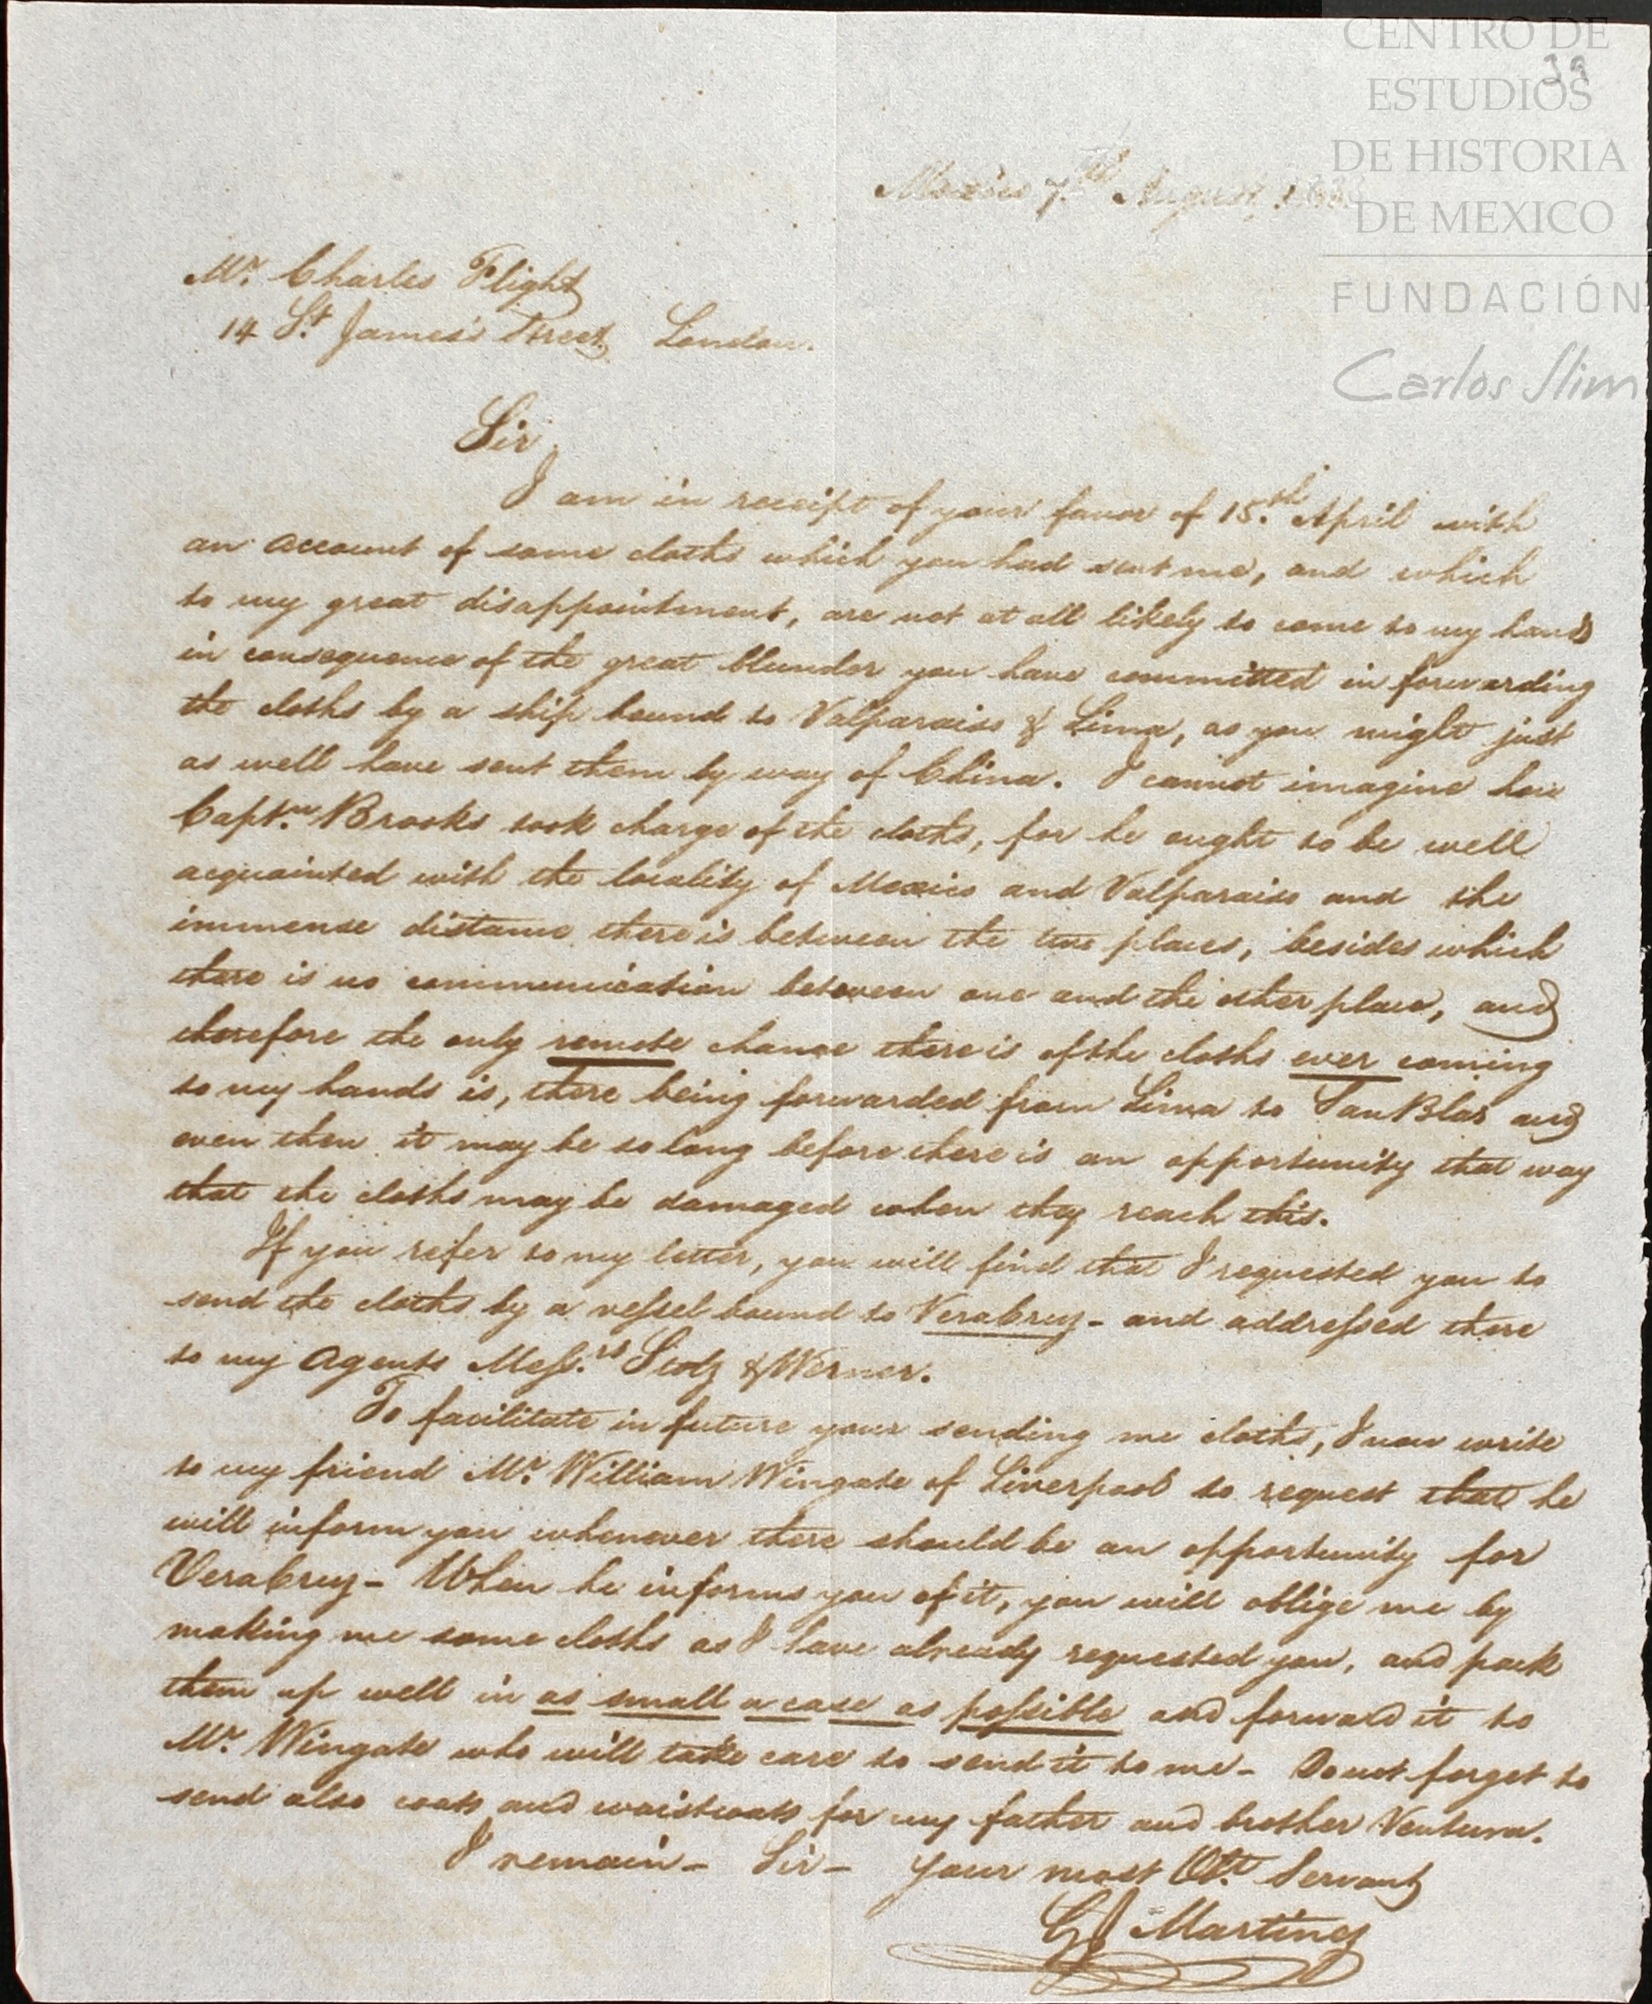 CENTRO DE
39
ESTUDIOS
DE HISTORIA
DE MEXICO
FUNDACIÓN
Carlos Slim
Mexico 7th August
Mr. Charles Flight
14 St. James's Street London.
Sir,
I am in receipt of your favor of 15.th April with
an account of some cloths which you had sent me, and which
to my great disappointment, are not at all likely to come to my hands
in consequence of the great blunder you have committed in forwarding
the cloths by a ship bound to Valparaiso & Lima, as you might just
as well have sent them by way of China. I cannot imagine how
Capt.n Brooks took charge of the cloths, for he ought to be well
acquainted with the locality of Mexico and Valparaiso and the
immense distance there is between the two places, besides which
there is no communication between one and the other place, and
therefore the only remote chance there is of the cloths ever coming
to my hands is, there being forwarded from Lima to San Blas and
even then it may be so long before there is an opportunity that way
that the cloths may be damaged when they reach this.
If you refer to my letter, you will find that I requested you to
send the cloths by a vessel bound to VeraCruz - and addressed there
to my Agents Mess.rs & Werner.
To facilitate in future your sending me cloths, I now write
to my friend Mr. William Wingate of Liverpool to request that he
will inform you whenever there should be an opportunity for
VeraCruz - When he informs you of it, you will oblige me by
making me some cloths as I have already requested you, and pack
them up well in as small a case as possible and forward it to
Mr. Wingate who will take care to send it to me - Do not forget to
send also coats and waistcoats for my father and brother Ventura.
I remain - Sir - Your most Obt. Servant
Martinez